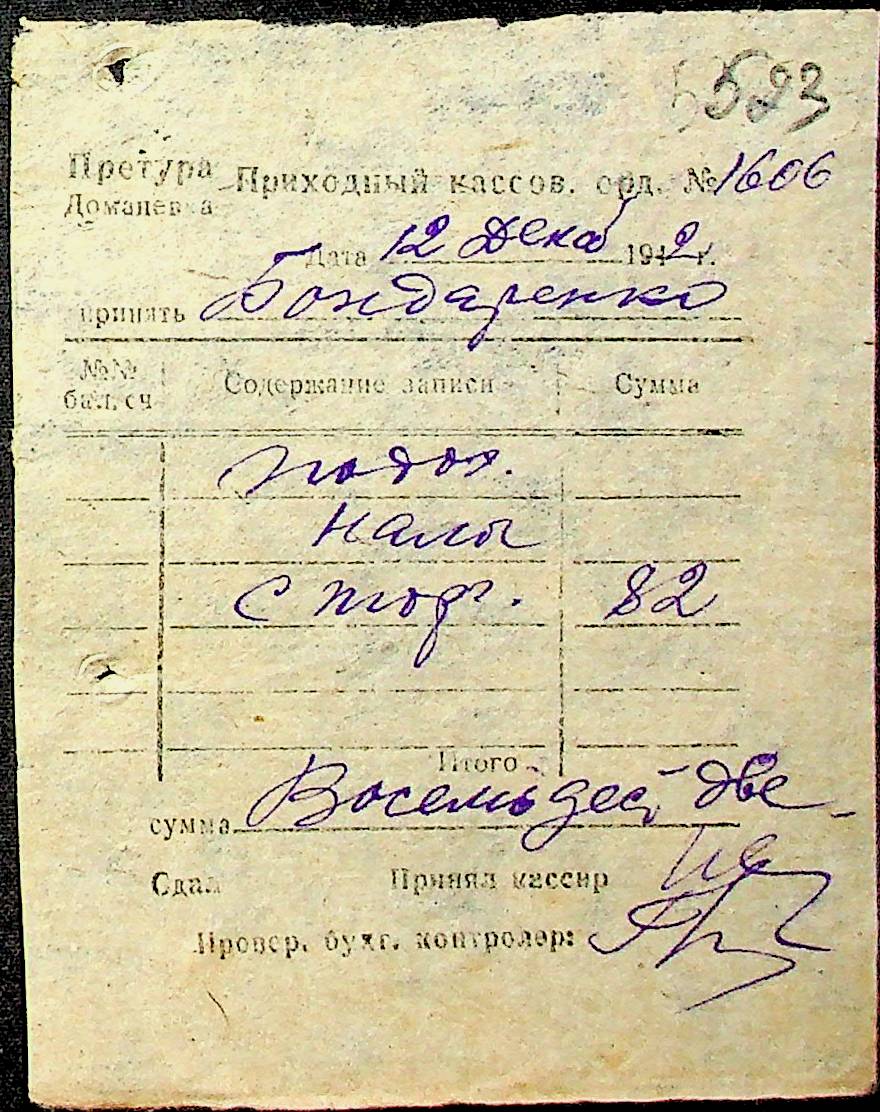 5523
Претура Приходный кассов. орд. № 1606
Доманевка
Дата 12 Дека 1942 г.
принять Бондаренко
№№ бал. сч Содержание записи Сумма
подох.
налог
с торг. 82
Итого
сумма Восемьдес две
Сдал Принял кассир
Провер. бухг. контролер: